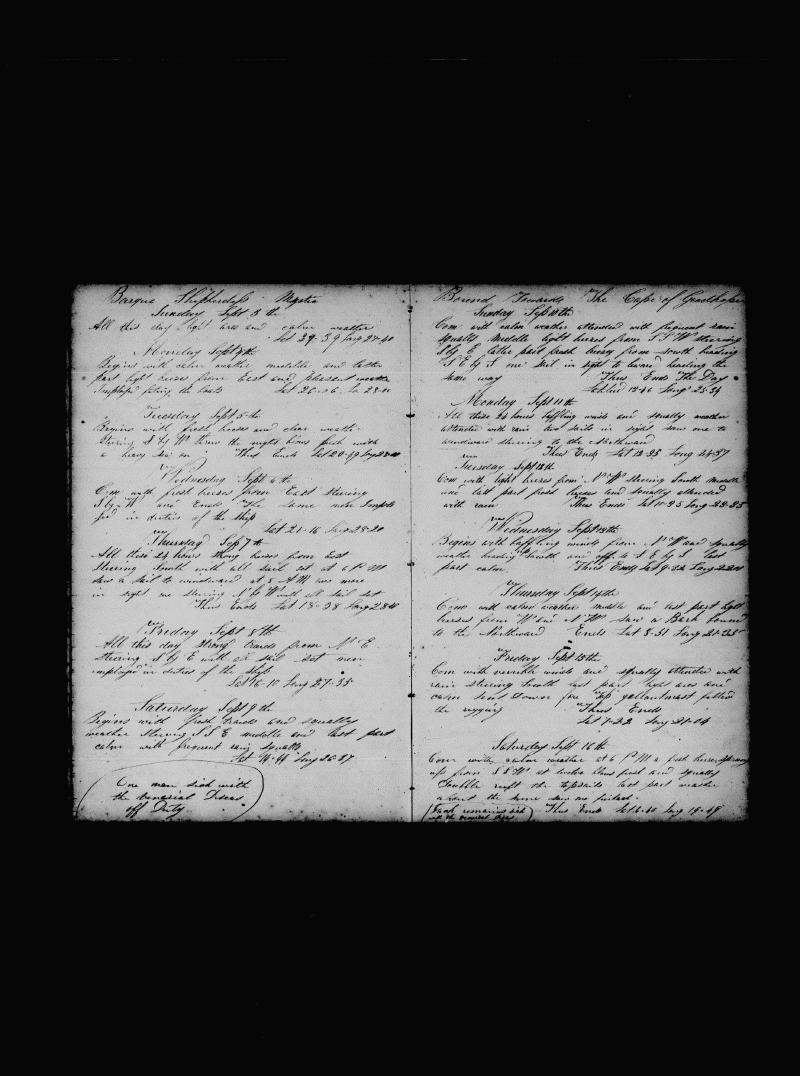 Barque Shepherdess Mystic
Sunday Sept 3th
All this day light airs and calm weather
Lat 29-39 Long 27-40
Monday Sept 4th
Begins with calm weather middle and latter
part light breses from East and pleasant weather
the boats Lat 26-06
Tuesday Sept 5th
Begins with fresh breses and clear weather
Steering S by W the night fresh with
a heavy sea on Thus Ends Lat 20-49 Long
Wednesday Sept 6th
Com with fresh breses from East steering
S by W and Ends the same men employ
in duties of the ship
Lat 21-16 Long 28-20
Thursday Sept 7th
All these 24 hours strong breses from East
Steering South with all sail set at 6 PM
saw a sail to windward at 5 AM saw more
in sight steering with all sail set
Thus Ends Lat 18-28 Long
Friday Sept 8th
All this day strong trades from N E
Steering S by E with all sail set men
employed in duties of the ship
Lat 16-10 Long 27-35
Saturday Sept 9th
Begins with fresh trades and squally
weather steering S S E middle and last part
calm with frequent rain squalls
Lat 14-44 Long 26-37
One man sick with
the veneral Diseas
off Duty
Bound Towards The Cape of Goodhope
Sunday Sept 10th
Com with calm weather attended with frequent rain
squalls middle light breses from S S W steering
S by E latter part fresh breesy from south heading
S E by S one sail in sight to leward heading the
same way Thus Ends The Day
Lat 13-46 Long 25-39
Monday Sept 11th
All these 24 hours baffling winds and squally weather
attended with rain two sails in sight saw one to
windward steering to the Northward
Thus Ends Lat 12-25 Long 24-37
Tuesday Sept 12th
Com with light breses from N W steering South middle
and last part fresh breses and squally attended
with rain Thus Ends Lat 10-25 Long 23-25
Wednesday Sept 13th
Begins with baffling winds from N W and squally
weather heading South and off to S E by S last
part calm Thus Ends Lat 9-32 Long
Thursday Sept 14th
Com with calm weather middle and last part light
breses from W and N W saw a Bark bound
to the Northward Ends Lat 8-51 Long
Friday Sept 15th
Com with variable winds and squally attended with
rain steering South last part light airs and
calm sent down fore top gallantmast fitted
the rigging Thus Ends
Lat 7-22 Long 21-04
Saturday Sept 16th
Com with calm weather at 6 PM a fresh brese sprang
up from S S W at twelve blows fresh and squally
Double reeft the topsails last part weather
about the same saw no finbacks
Thus Ends Long 19-49
remains sick
with the veneral Diseas